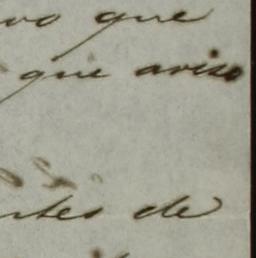 vo que
que aviso
ntes de